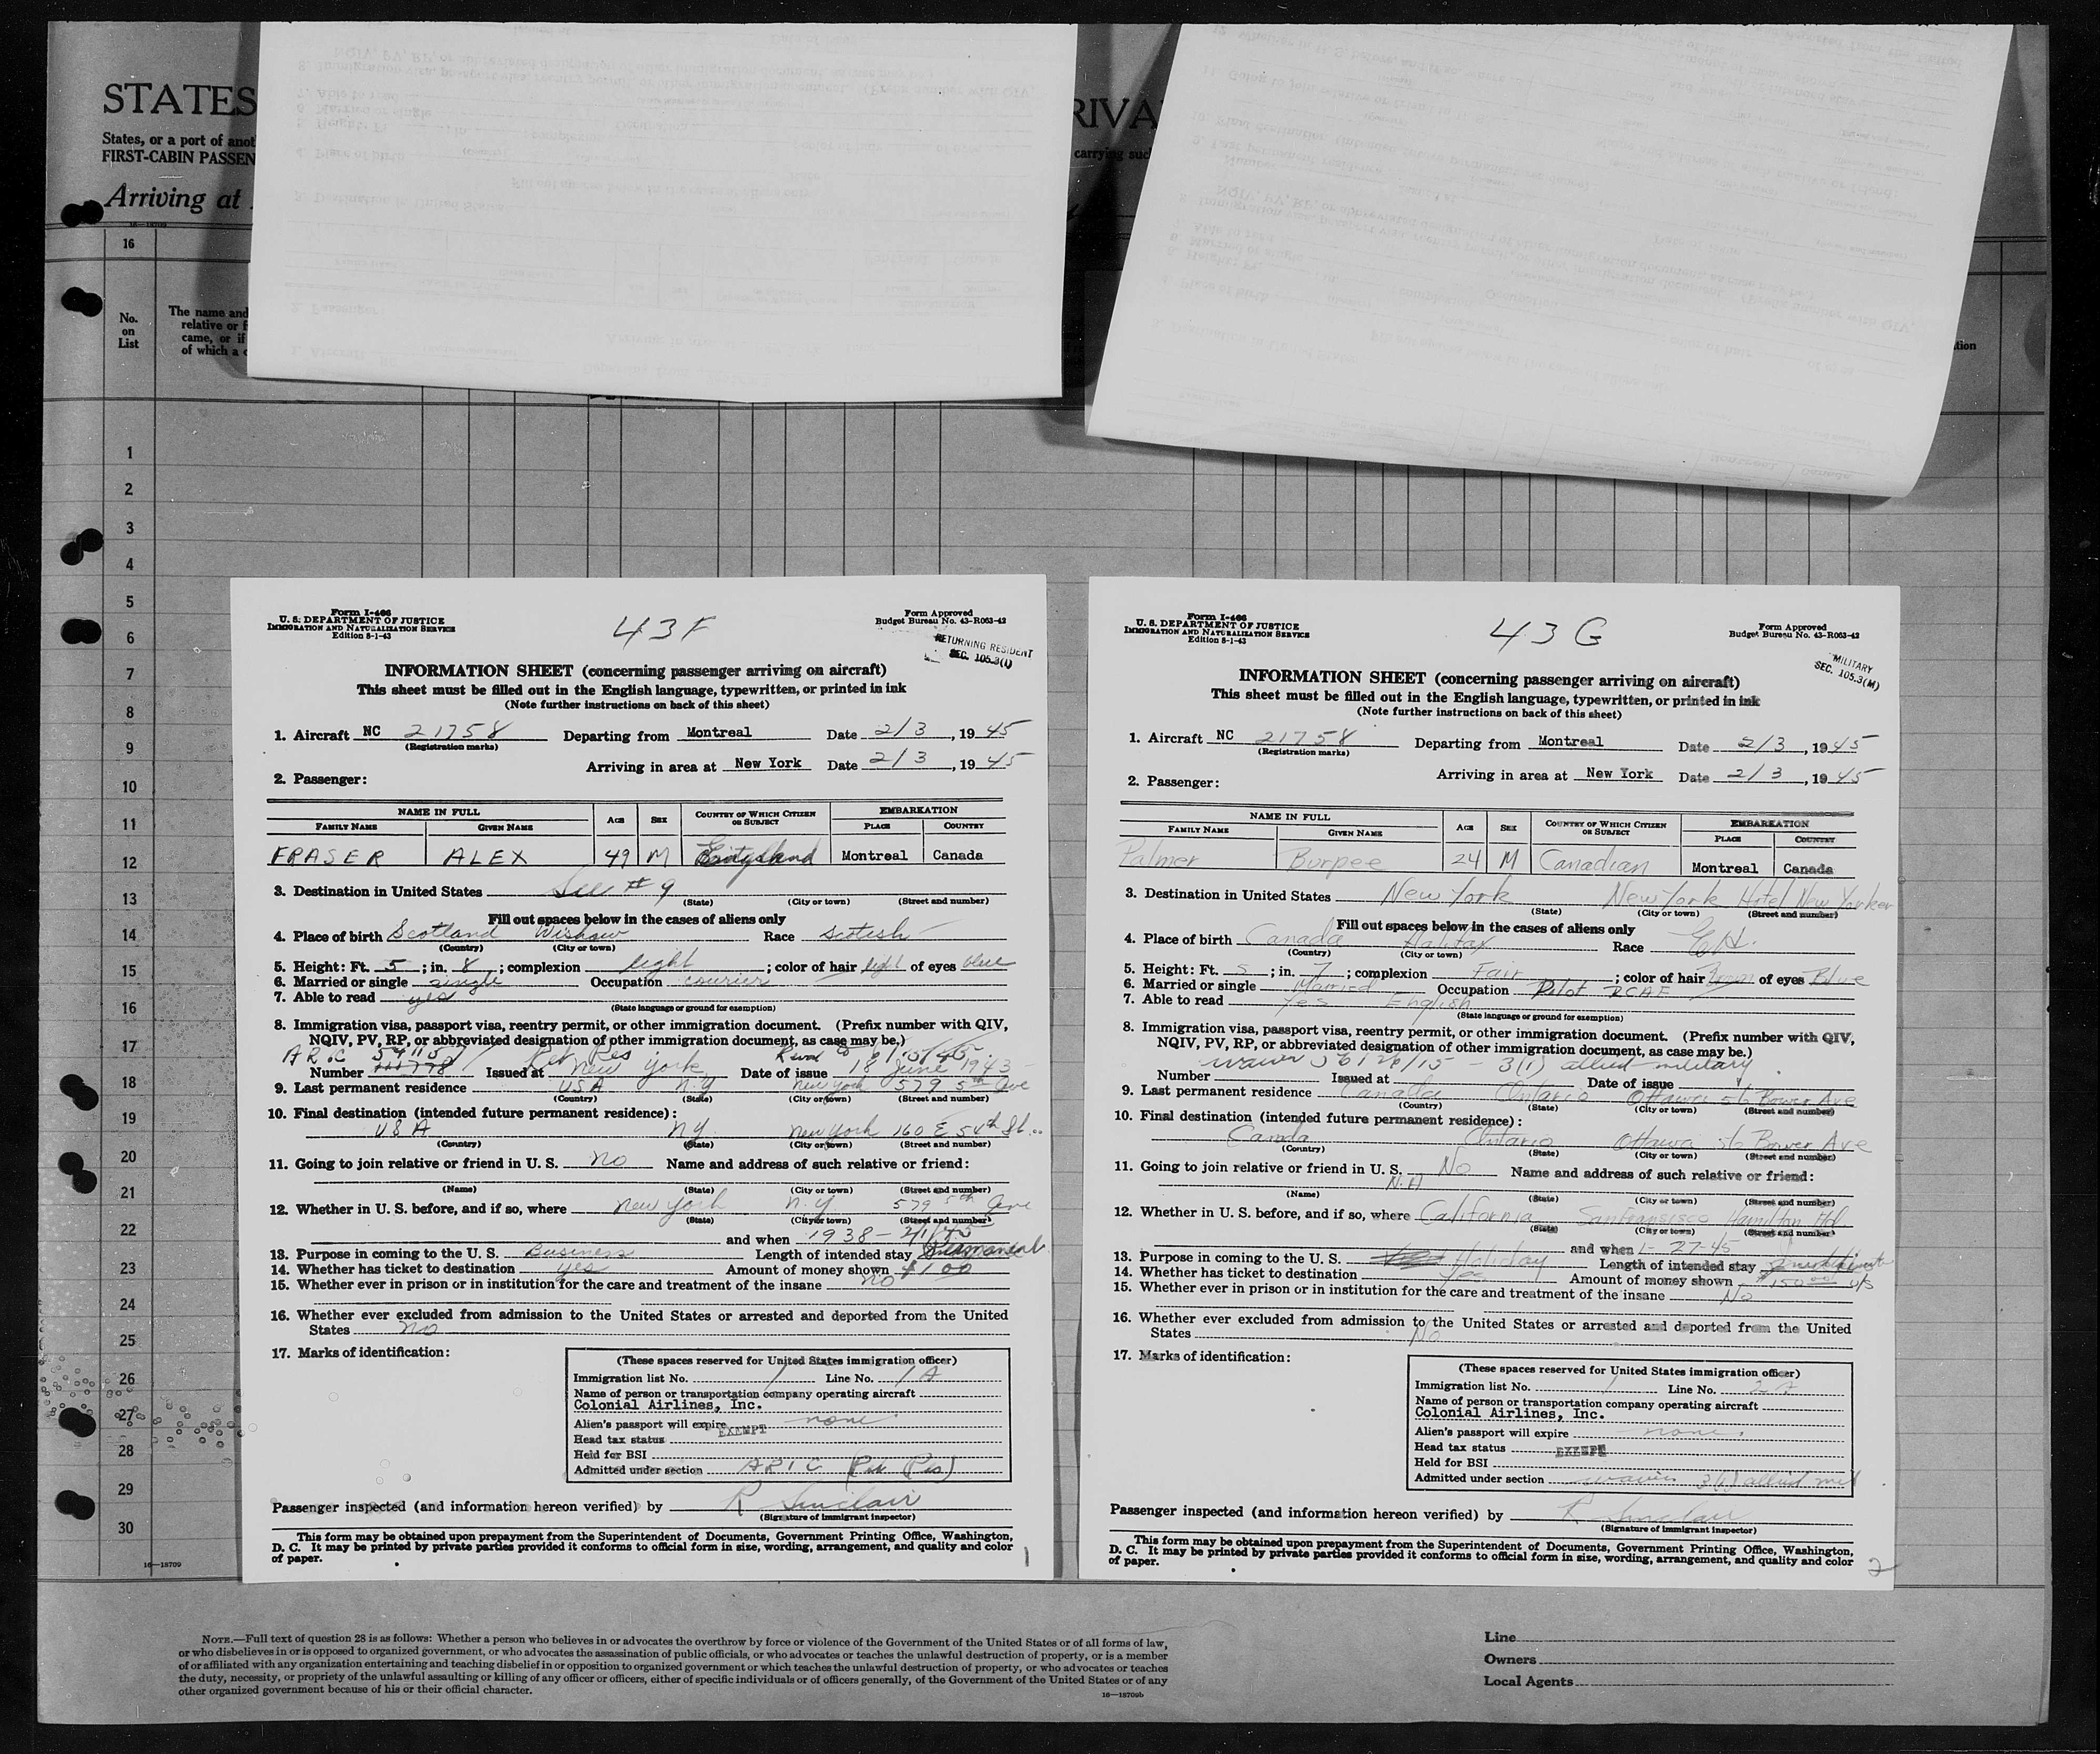 STATES
RIVA
States, or a port of anot
FIRST-CABIN PASSEN
carrying suc
Arriving at
16—18709
16
No.
on
List
The name and
relative or f
came, or if
of which a c
tion
1
2
3
4
5
6
7
8
9
10
11
12
13
14
15
16
17
18
19
20
21
22
23
24
25
26
27
28
29
30
16—18709
Form I-466
U. S. DEPARTMENT OF JUSTICE
IMMIGRATION AND NATURALIZATION SERVICE
Edition 5-1-43
43F
Form Approved
Budget Bureau No. 43-R063-42
RETURNING RESIDENT
SEC. 105.3(I)
INFORMATION SHEET (concerning passenger arriving on aircraft)
This sheet must be filled out in the English language, typewritten, or printed in ink
(Note further instructions on back of this sheet)
1. Aircraft NC 21758 Departing from Montreal Date 2/3, 1945
(Registration marks)
Arriving in area at New York Date 2/3, 1945
2. Passenger:
NAME IN FULL AGE SEX COUNTRY OF WHICH CITIZEN OR SUBJECT EMBARKATION
FAMILY NAME GIVEN NAME PLACE COUNTRY
FRASER ALEX 49 M Montreal Canada
3. Destination in United States See # 9
(State) (City or town) (Street and number)
Fill out spaces below in the cases of aliens only
4. Place of birth Scotland Wishaw Race Scotish
(Country) (City or town)
5. Height: Ft. 5; in. 8; complexion light; color of hair light of eyes blue
6. Married or single single Occupation courier
7. Able to read yes
(State language or ground for exemption)
8. Immigration visa, passport visa, reentry permit, or other immigration document. (Prefix number with QIV,
NQIV, PV, RP, or abbreviated designation of other immigration document, as case may be.)
ARIC
Number Issued at New York Date of issue 18 June 1943
9. Last permanent residence USA N.Y New York 579 5th Ave
(Country) (State) (City or town) (Street and number)
10. Final destination (intended future permanent residence):
USA NY New York 160 E 54th St.
(Country) (State) (City or town) (Street and number)
11. Going to join relative or friend in U. S. no Name and address of such relative or friend:
(Name) (State) (City or town) (Street and number)
12. Whether in U. S. before, and if so, where New York N.Y 579 5th Ave
(State) (City or town) (Street and number)
and when 1938 -
13. Purpose in coming to the U. S. Business Length of intended stay
14. Whether has ticket to destination yes Amount of money shown $100
15. Whether ever in prison or in institution for the care and treatment of the insane no
16. Whether ever excluded from admission to the United States or arrested and deported from the United
States no
17. Marks of identification:
(These spaces reserved for United States immigration officer)
Immigration list No. 1 Line No. 1A
Name of person or transportation company operating aircraft
Colonial Airlines, Inc.
Alien's passport will expire none
Head tax status EXEMPT
Held for BSI
Admitted under section ARIC
Passenger inspected (and information hereon verified) by R Sinclair
(Signature of immigrant inspector)
This form may be obtained upon prepayment from the Superintendent of Documents, Government Printing Office, Washington,
D. C. It may be printed by private parties provided it conforms to official form in size, wording, arrangement, and quality and color
of paper.
1
Form I-466
U. S. DEPARTMENT OF JUSTICE
IMMIGRATION AND NATURALIZATION SERVICE
Edition 5-1-43
43G
Form Approved
Budget Bureau No. 43-R063-42
MILITARY
SEC. 105.3(M)
INFORMATION SHEET (concerning passenger arriving on aircraft)
This sheet must be filled out in the English language, typewritten, or printed in ink
(Note further instructions on back of this sheet)
1. Aircraft NC 21758 Departing from Montreal Date 2/3, 1945
(Registration marks)
Arriving in area at New York Date 2/3, 1945
2. Passenger:
NAME IN FULL AGE SEX COUNTRY OF WHICH CITIZEN OR SUBJECT EMBARKATION
FAMILY NAME GIVEN NAME PLACE COUNTRY
Palmer Burpee 24 M Canadian Montreal Canada
3. Destination in United States New York New York Hotel New Yorker
(State) (City or town) (Street and number)
Fill out spaces below in the cases of aliens only
4. Place of birth Canada Halifax Race
(Country) (City or town)
5. Height: Ft. 5; in. 7; complexion Fair; color of hair Brown of eyes Blue
6. Married or single Married Occupation Pilot RCAF
7. Able to read Yes English
(State language or ground for exemption)
8. Immigration visa, passport visa, reentry permit, or other immigration document. (Prefix number with QIV,
NQIV, PV, RP, or abbreviated designation of other immigration document, as case may be.)
waiver 3(1) allied military
Number Issued at Date of issue
9. Last permanent residence Canada Ontario Ottawa 56 Bower Ave
(Country) (State) (City or town) (Street and number)
10. Final destination (intended future permanent residence):
Canada Ontario Ottawa 56 Bower Ave
(Country) (State) (City or town) (Street and number)
11. Going to join relative or friend in U. S. No Name and address of such relative or friend:
N.A
(Name) (State) (City or town) (Street and number)
12. Whether in U. S. before, and if so, where California SanFransisco Hamilton
(State) (City or town) (Street and number)
and when 1-27-45
13. Purpose in coming to the U. S. Holiday Length of intended stay
14. Whether has ticket to destination Yes Amount of money shown $150.00 U/S
15. Whether ever in prison or in institution for the care and treatment of the insane No
16. Whether ever excluded from admission to the United States or arrested and deported from the United
States No
17. Marks of identification:
(These spaces reserved for United States immigration officer)
Immigration list No. 1 Line No. 2A
Name of person or transportation company operating aircraft
Colonial Airlines, Inc.
Alien's passport will expire none.
Head tax status EXEMPT
Held for BSI
Admitted under section waiver 3(1) allied mil
Passenger inspected (and information hereon verified) by R Sinclair
(Signature of immigrant inspector)
This form may be obtained upon prepayment from the Superintendent of Documents, Government Printing Office, Washington,
D. C. It may be printed by private parties provided it conforms to official form in size, wording, arrangement, and quality and color
of paper.
2
NOTE.—Full text of question 28 is as follows: Whether a person who believes in or advocates the overthrow by force or violence of the Government of the United States or of all forms of law,
or who disbelieves in or is opposed to organized government, or who advocates the assassination of public officials, or who advocates or teaches the unlawful destruction of property, or is a member
of or affiliated with any organization entertaining and teaching disbelief in or opposition to organized government or which teaches the unlawful destruction of property, or who advocates or teaches
the duty, necessity, or propriety of the unlawful assaulting or killing of any officer or officers, either of specific individuals or of officers generally, of the Government of the United States or of any
other organized government because of his or their official character.
16—18709b
Line
Owners
Local Agents